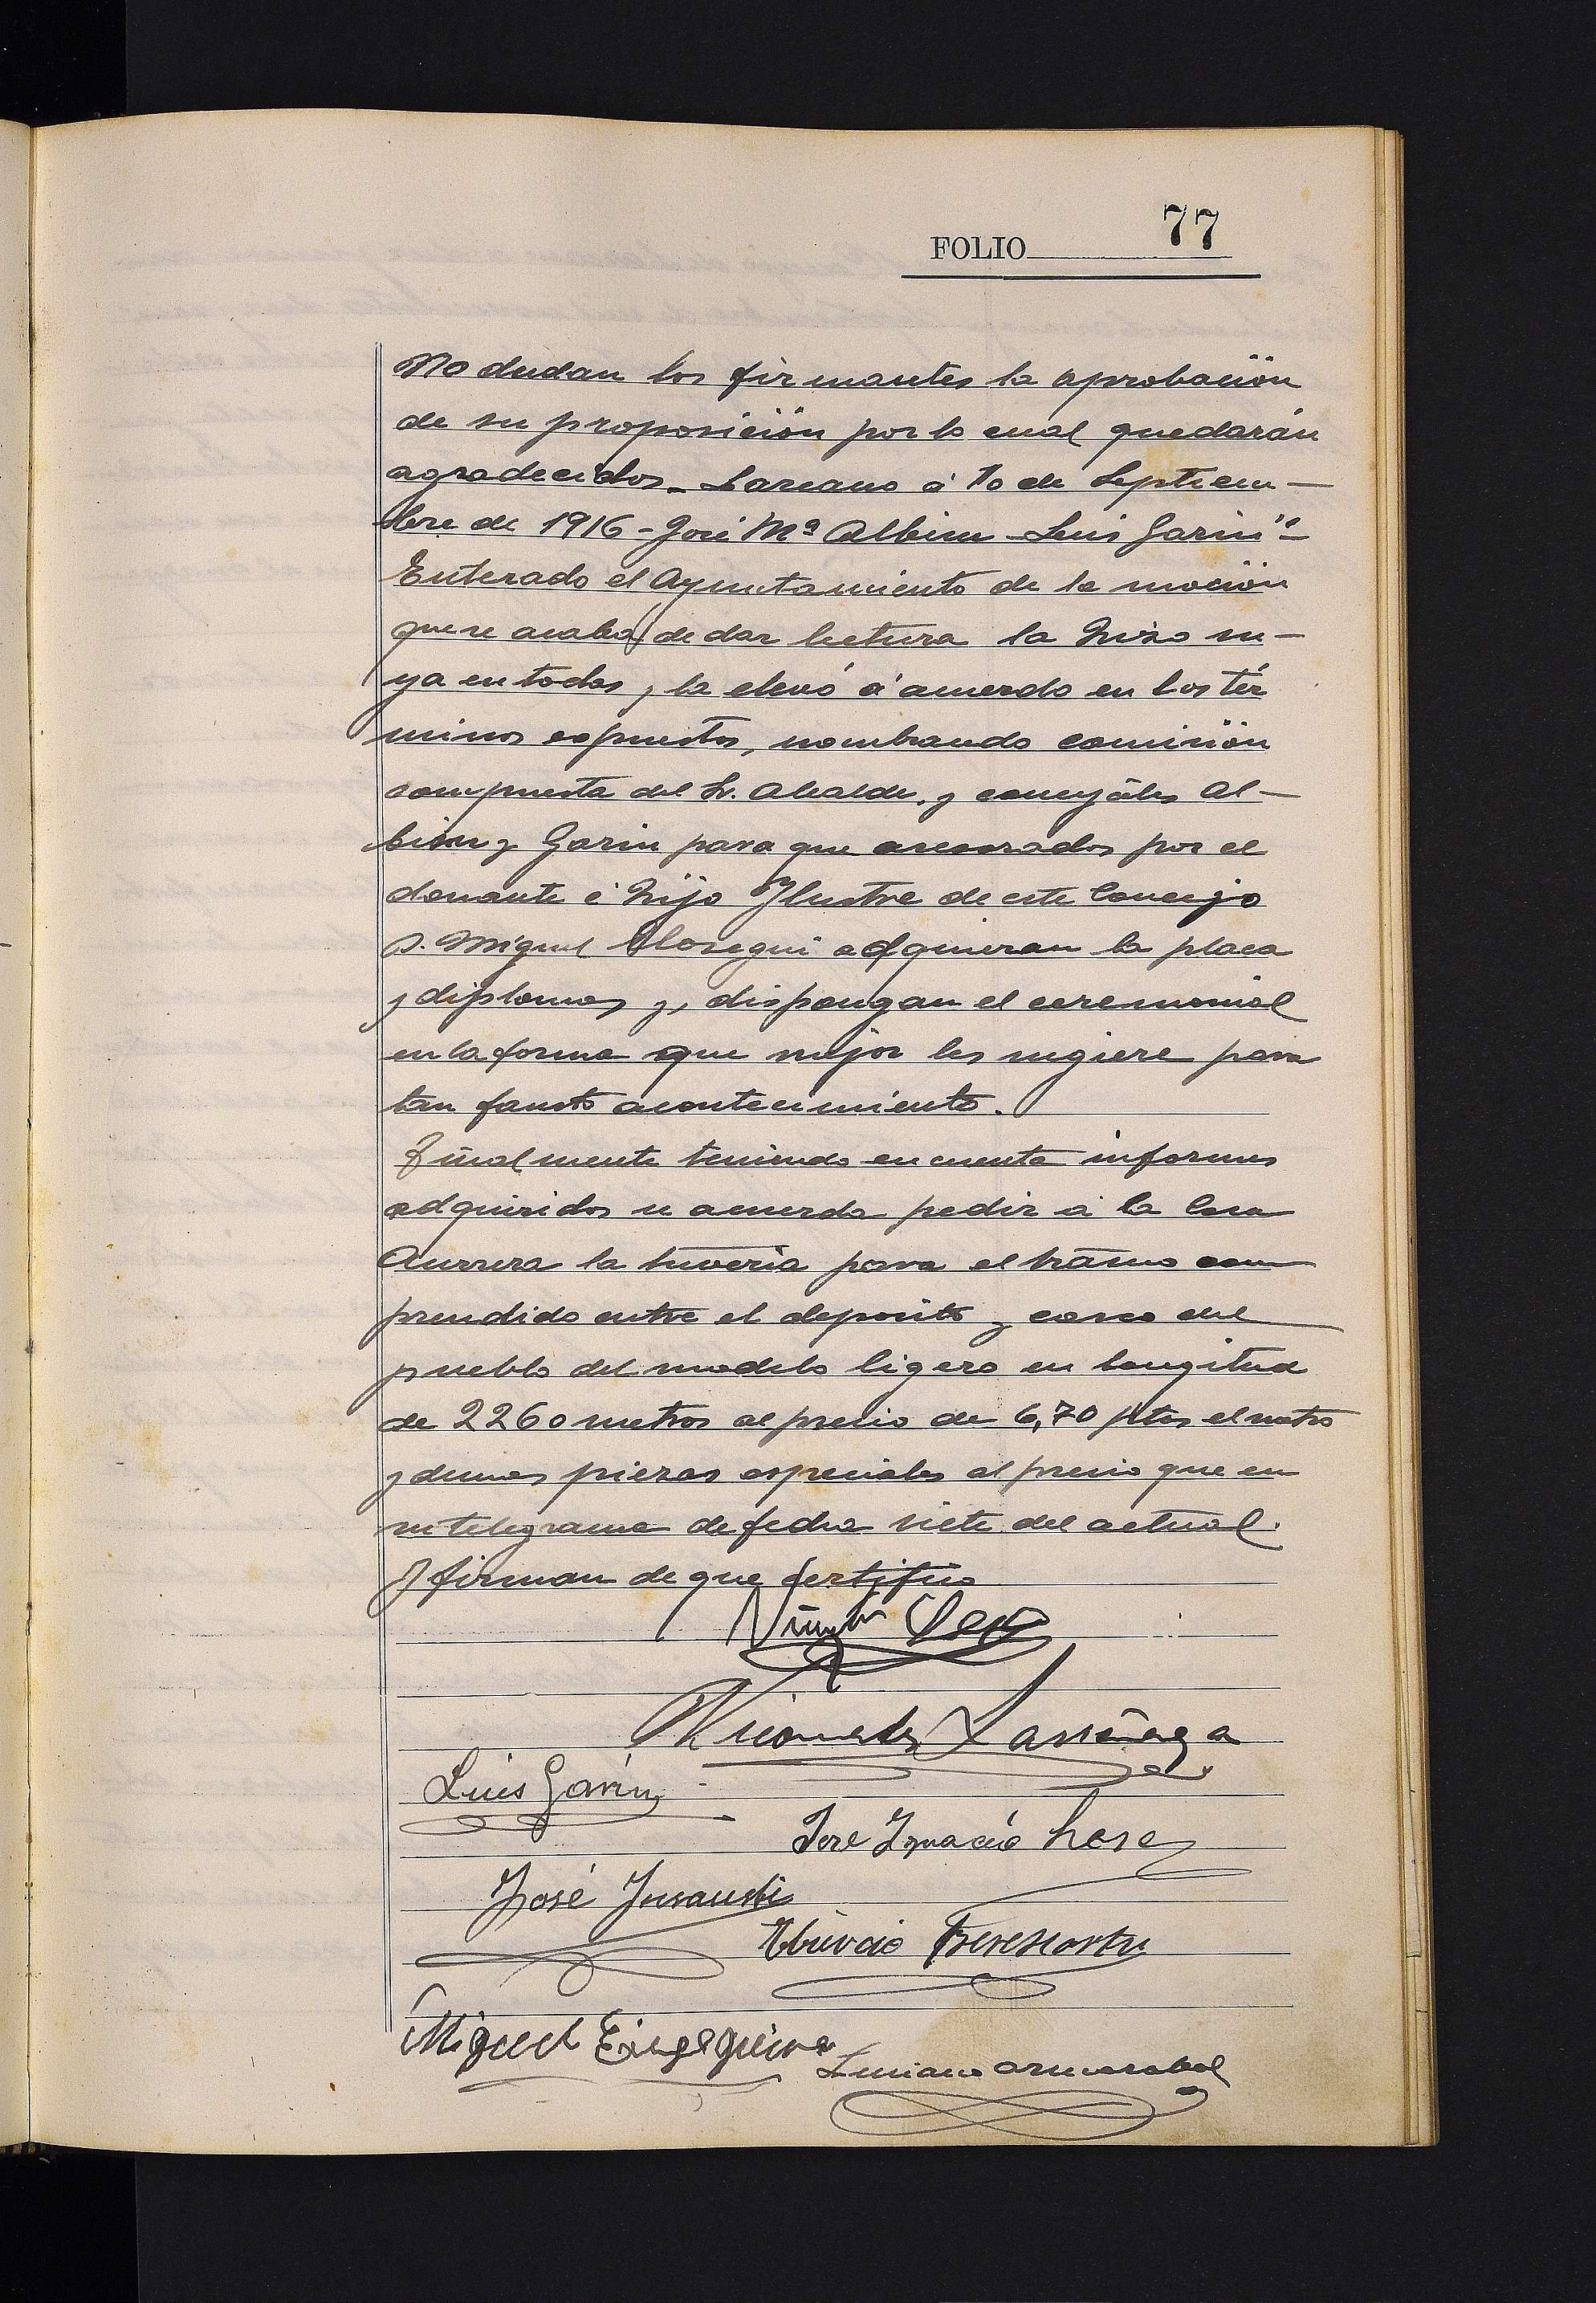 FOLIO 77
No dudan los firmantes la aprobación
de su proposición por lo cual quedarán
agradecidos. Lazcano á 10 de Septiem-
bre de 1916 - José Mª Albisu - Luis Garin" -
Enterado el Ayuntamiento de la moción
que se acaba de dar lectura la hizo su-
ya en todas, y la elevó á acuerdo en los tér
minos expuestos, nombrando comisión
compuesta del Sr. Alcalde, y concejales Al-
bisu y Garin para que asesorados por el
donante é hijo Ilustre de este Concejo
D. Miguel Elosegui adquieran la placa
y diplomas y, dispongan el ceremonial
en la forma que mejor les sugiere para
tan fausto acontecimiento.
Finalmente teniendo en cuenta informes
adquiridos se acuerda pedir á la Casa
Aurrera la tuveria para el tramo com
prendido entre el deposito y casco del
pueblo del modelo ligero en longitud
de 2260 metros al precio de 6,70 ptas el metro
y demas piezas especiales al precio que en
su telegrama de fecha siete del actual.
Y firman de que certifico
Nicomedes Larrañaga
Luis Garin
José Ignacio
José Insausti
Miguel
Luciano